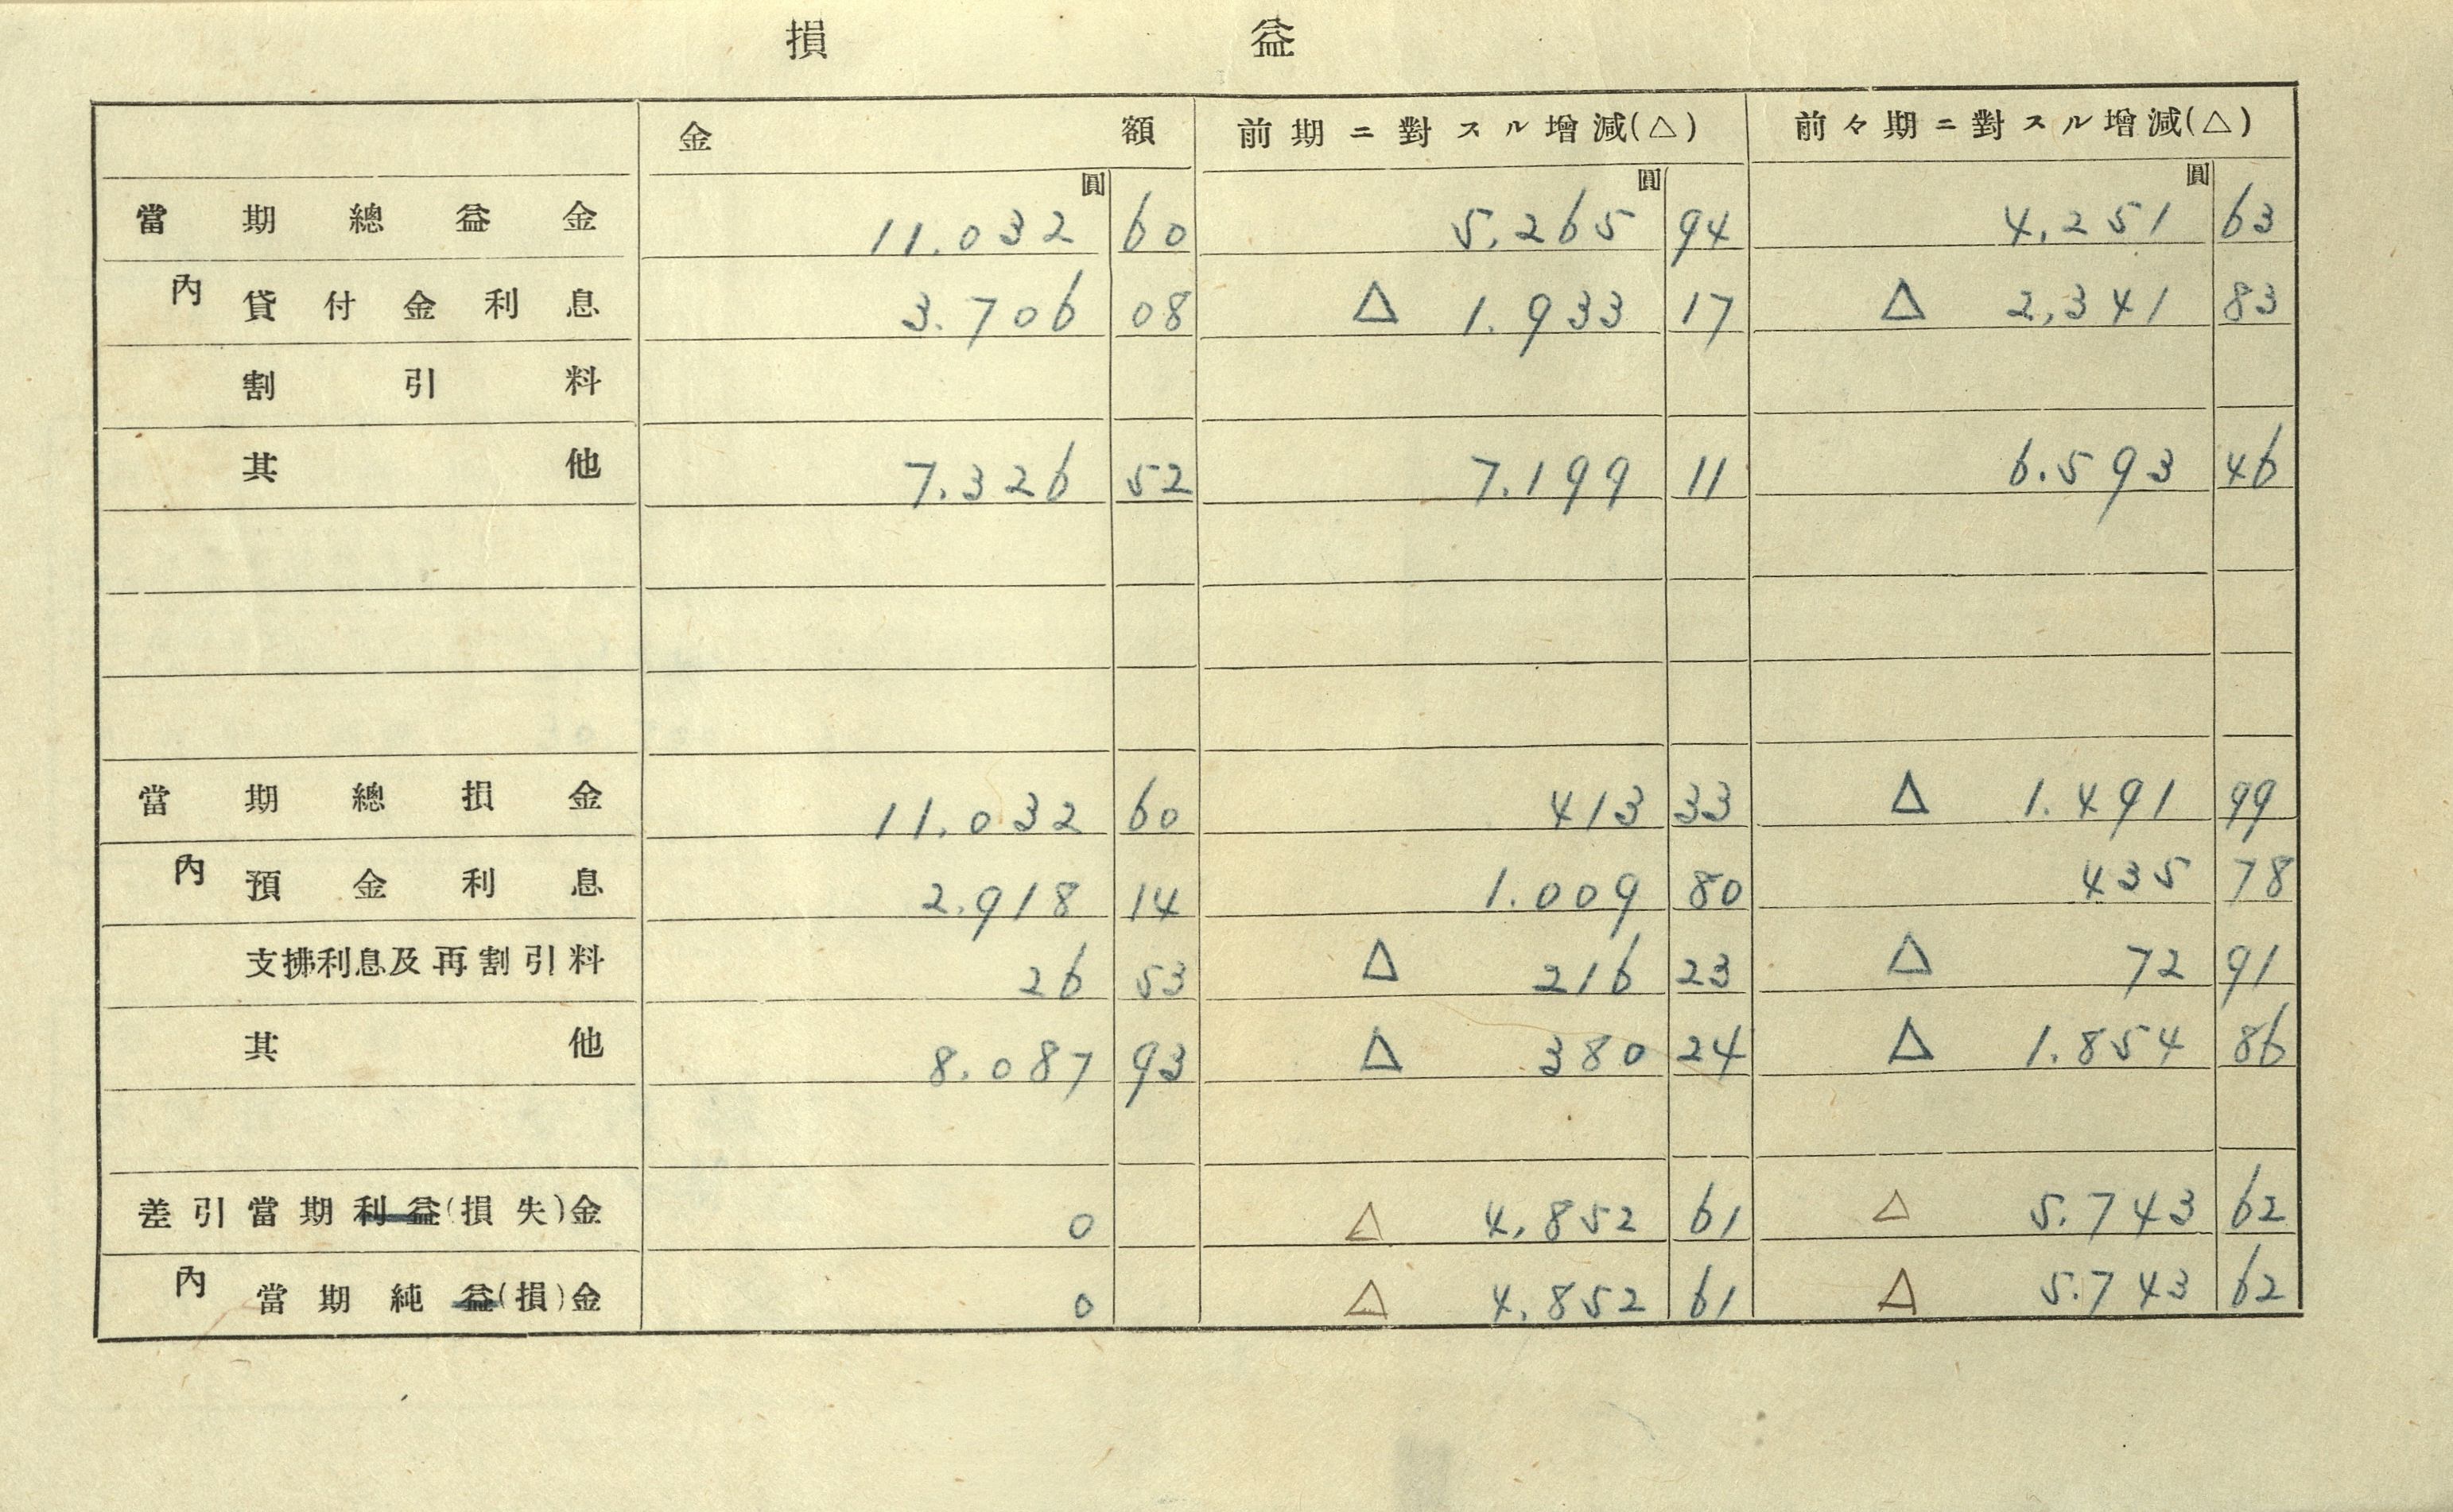 損 益
金 額 前期ニ對スル增減(△) 前々期ニ對スル增減(△)
圓 圓 圓
當期總益金 11.032 60 5.265 94 4.251 63
內 貸付金利息 3.706 08 △ 1.933 17 △ 2,341 83
割引料
其他 7.326 52 7.199 11 6.593 46
當期總損金 11.032 60 413 33 △ 1.491 99
內 預金利息 2.918 14 1.009 80 435 78
支拂利息及再割引料 26 53 △ 216 23 △ 72 91
其他 8.087 93 △ 380 24 △ 1.854 86
差引當期利益(損失)金 0 △ 4.852 61 △ 5.743 62
內 當期純益(損)金 0 △ 4.852 61 △ 5.743 62